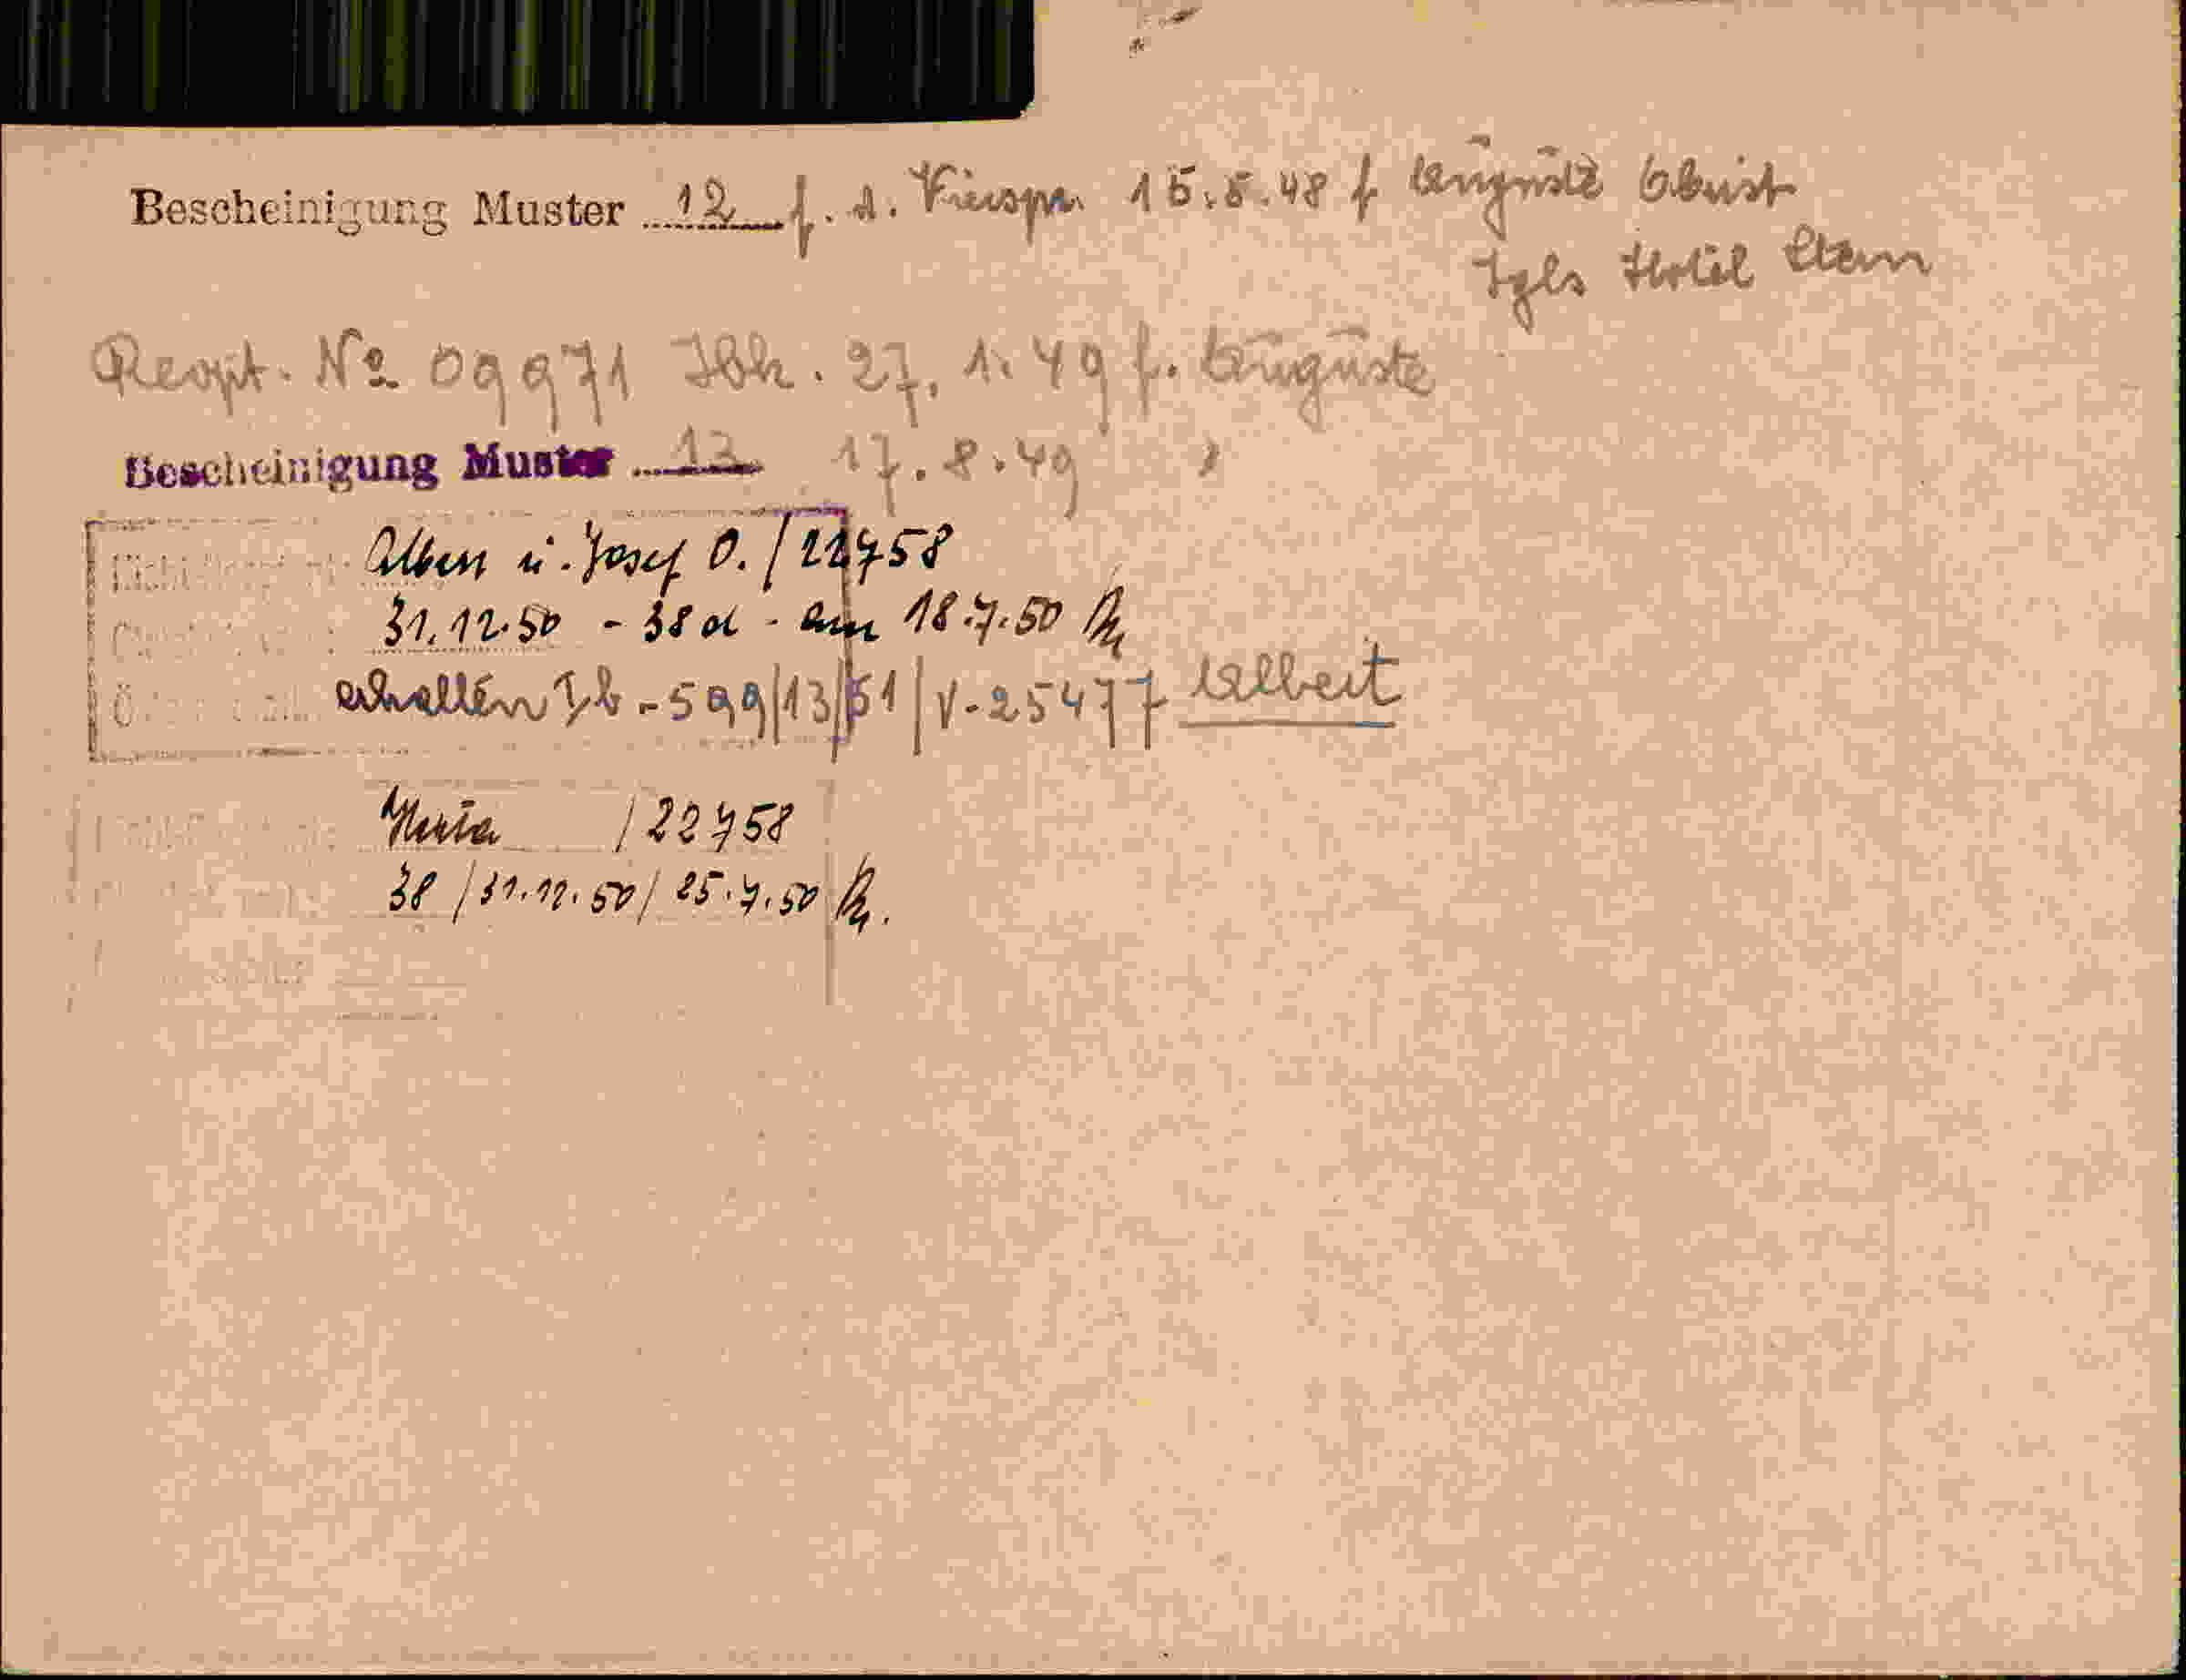 Bescheinigung Muster 12 f. d. 15.5.48 f Auguste Obrist
Igls Hotel Stern
Rept. Nº 09971 Ibk. 27.1.49 f. Auguste
Bescheinigung Muster 13 17.8.49 "
Albert u. Josef O. / 22758
31.12.50 - 38 d - am 18.7.50
erhalten Zb - 599/13/51/V-25477 Albert
Maria / 22758
38 / 31.12.50 / 25.7.50